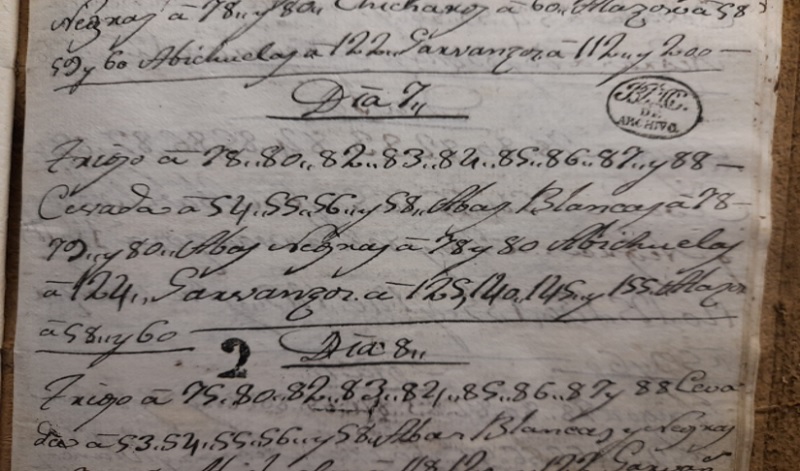 Negras à 78,, y 80,, Chicharos à 60,, Mazorca à 58
59 y 60 Abichuelas à 122,, Garvanzos à 112,, y 200 —
Dia 7,,
ARCHIVO.
Trigo à 78..80..82..83..84..85..86..87..y 88 —
Cevada à 54..55..56..y 58.. Abas Blancas à 78-
79,, y 80.. Abas Negras à 78 y 80 Abichuelas
à 124,, Garvanzos à 125, 140, 145, y 155.
à 58,, y 60
2 Dia 8,,
Trigo à 75.80..82..83..84..85..86..87 y 88 Ceva
da à 53.54..55..56..y 58.. Abas Blancas y Negras